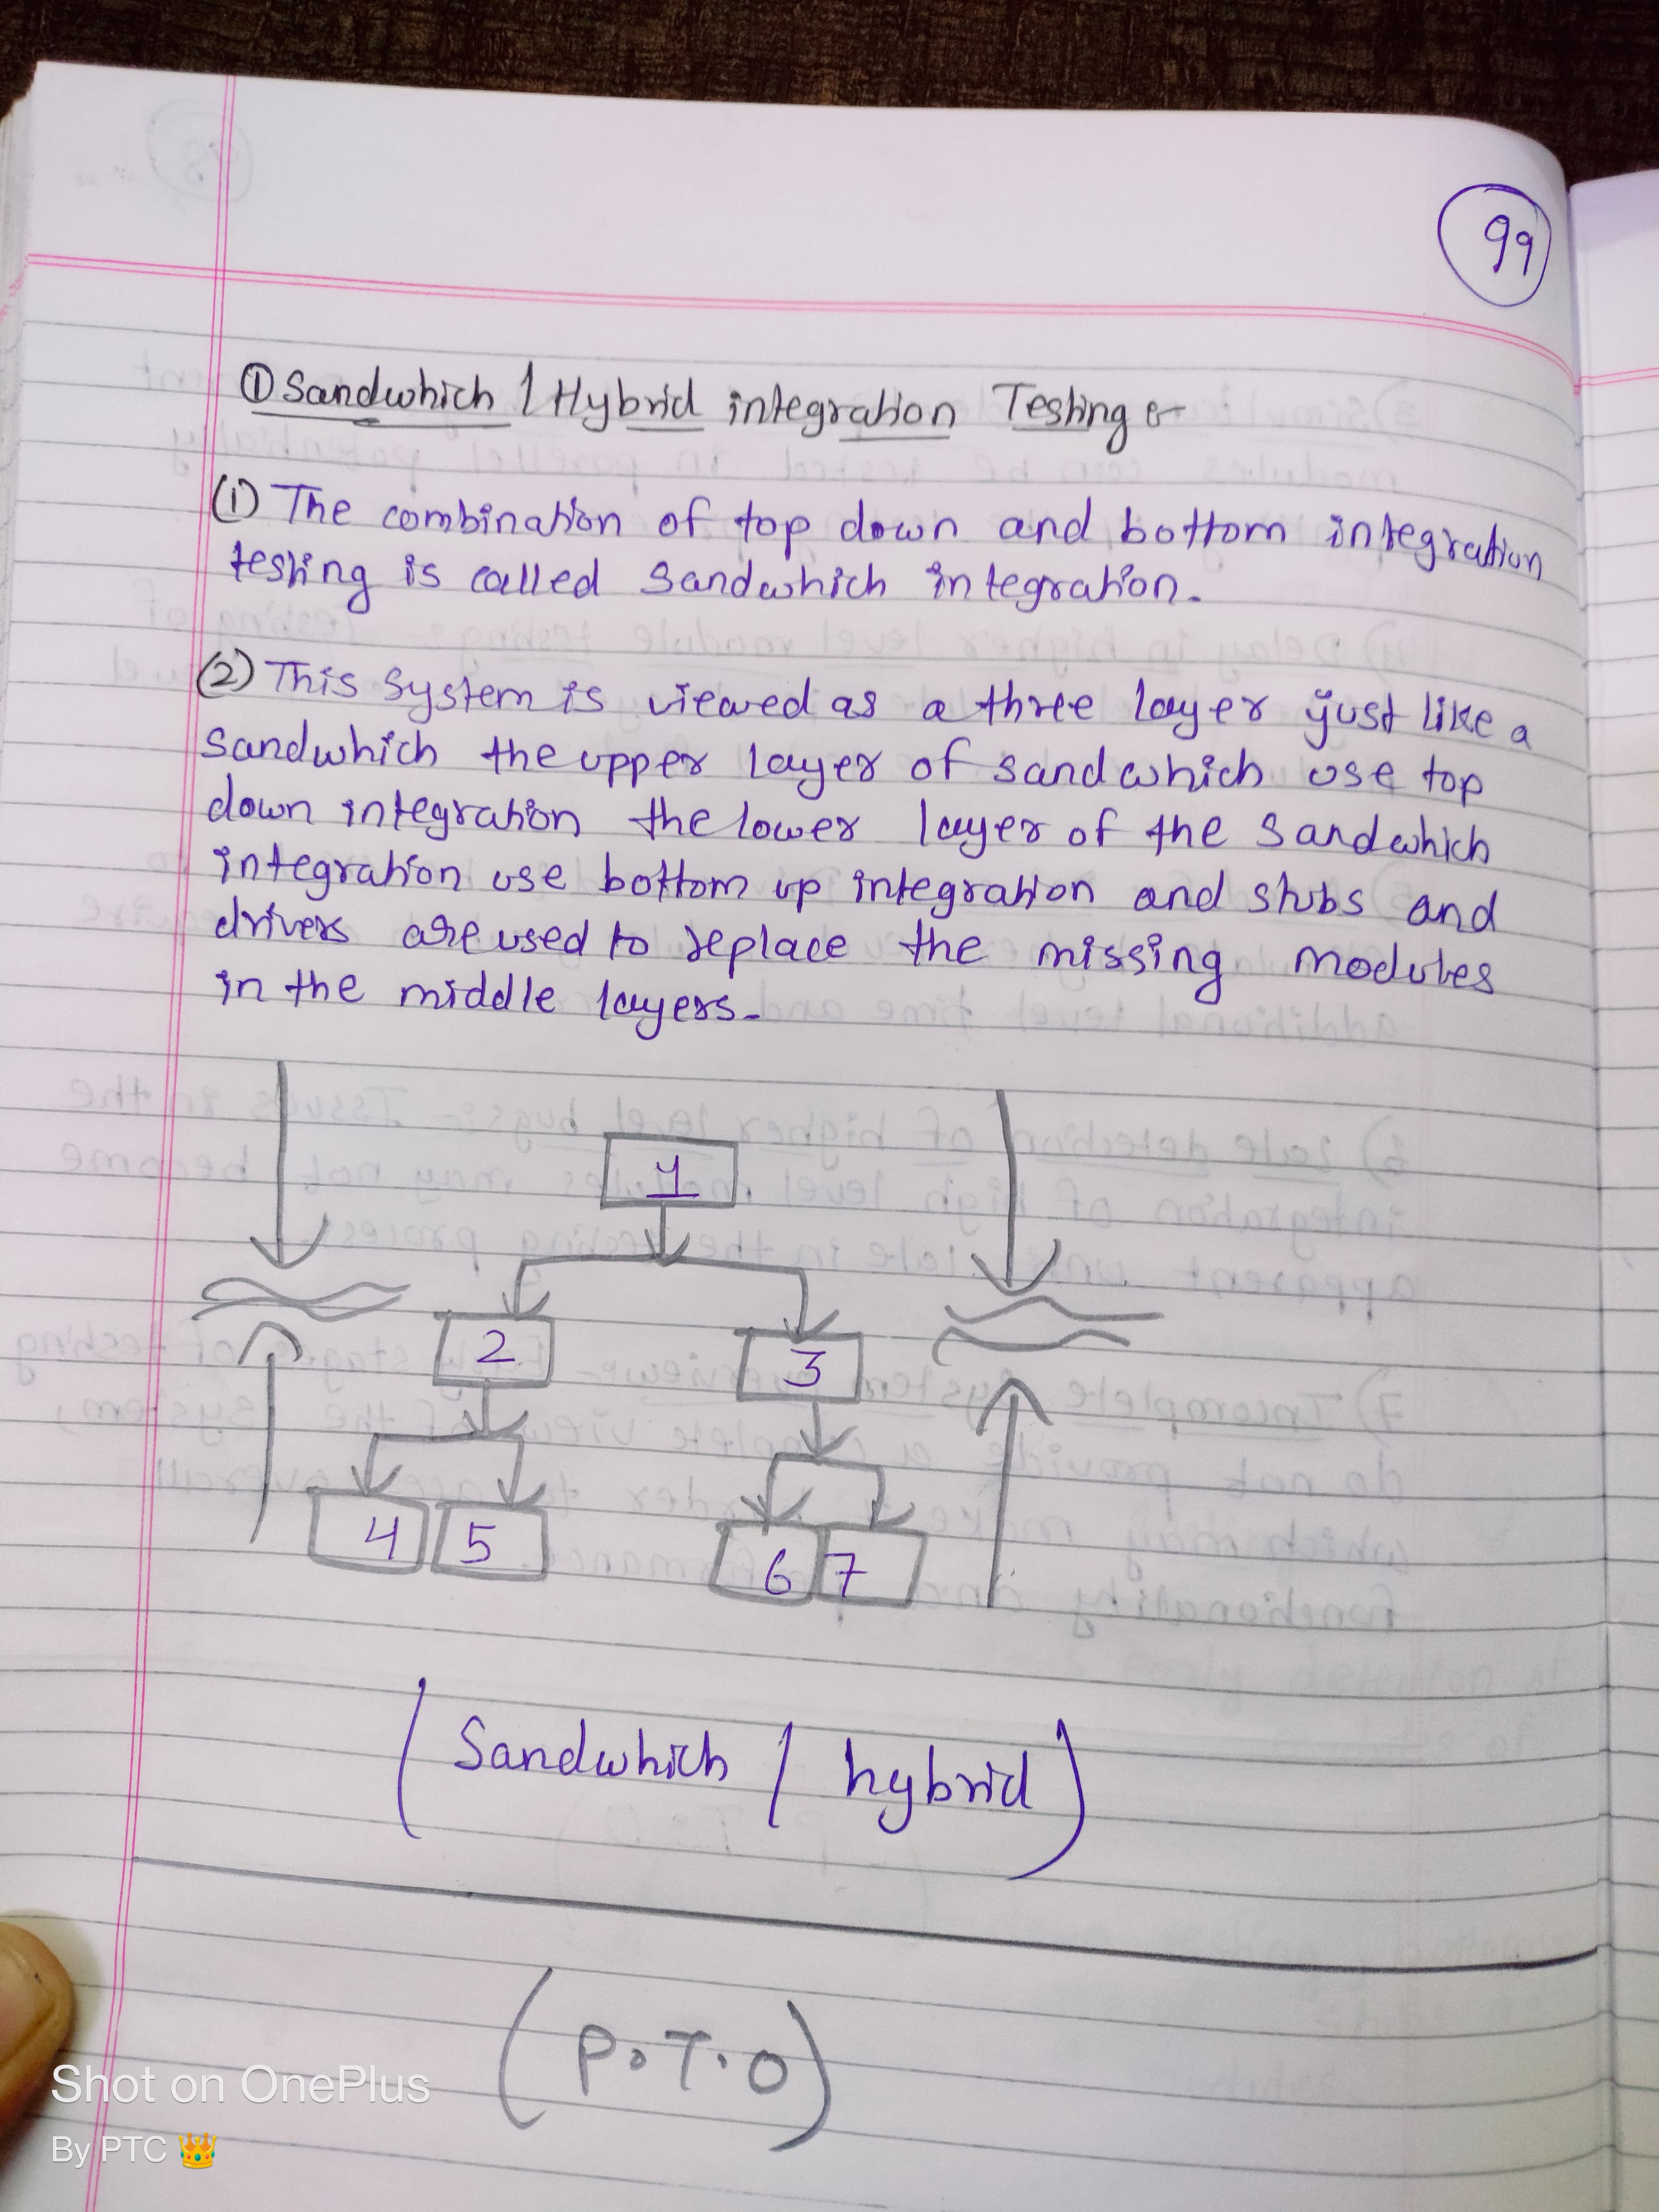 99
① Sandwhich / Hybrid integration Testing :-
(1) The combination of top down and bottom integration
testing is called sandwhich integration.
(2) This system is viewed as a three layer just like a
sandwhich the upper layer of sandwhich use top
down integration the lower layer of the sandwhich
integration use bottom up integration and stubs and
drivers are used to replace the missing modules
in the middle layers.
1
2
3
4 5
6 7
(Sandwhich / hybrid)
(P.T.O)
Shot on OnePlus
By PTC 👑